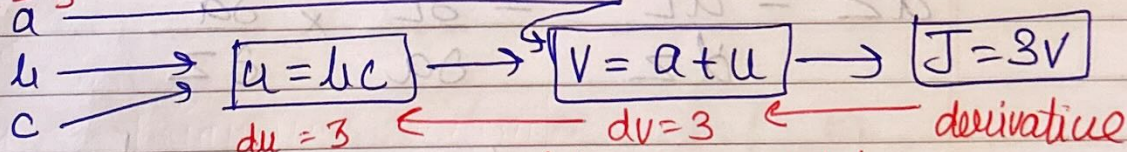 a
b → u = bc → v = a + u → J = 3v
c
du = 3 ← dv = 3 ← derivative